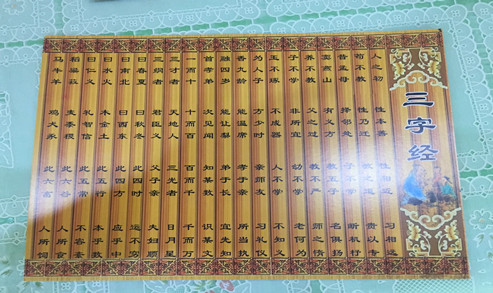 三字经
人之初 性本善 性相近 习相远
苟不教 性乃迁 教之道 贵以专
昔孟母 择邻处 子不学 断机杼
窦燕山 有义方 教五子 名俱扬
养不教 父之过 教不严 师之惰
子不学 非所宜 幼不学 老何为
玉不琢 不成器 人不学 不知义
为人子 方少时 亲师友 习礼仪
香九龄 能温席 孝于亲 所当执
融四岁 能让梨 弟于长 宜先知
首孝弟 次见闻 知某数 识某文
一而十 十而百 百而千 千而万
三才者 天地人 三光者 日月星
三纲者 君臣义 父子亲 夫妇顺
曰春夏 曰秋冬 此四时 运不穷
曰南北 曰西东 此四方 应乎中
曰水火 木金土 此五行 本乎数
曰仁义 礼智信 此五常 不容紊
稻粱菽 麦黍稷 此六谷 人所食
马牛羊 鸡犬豕 此六畜 人所饲